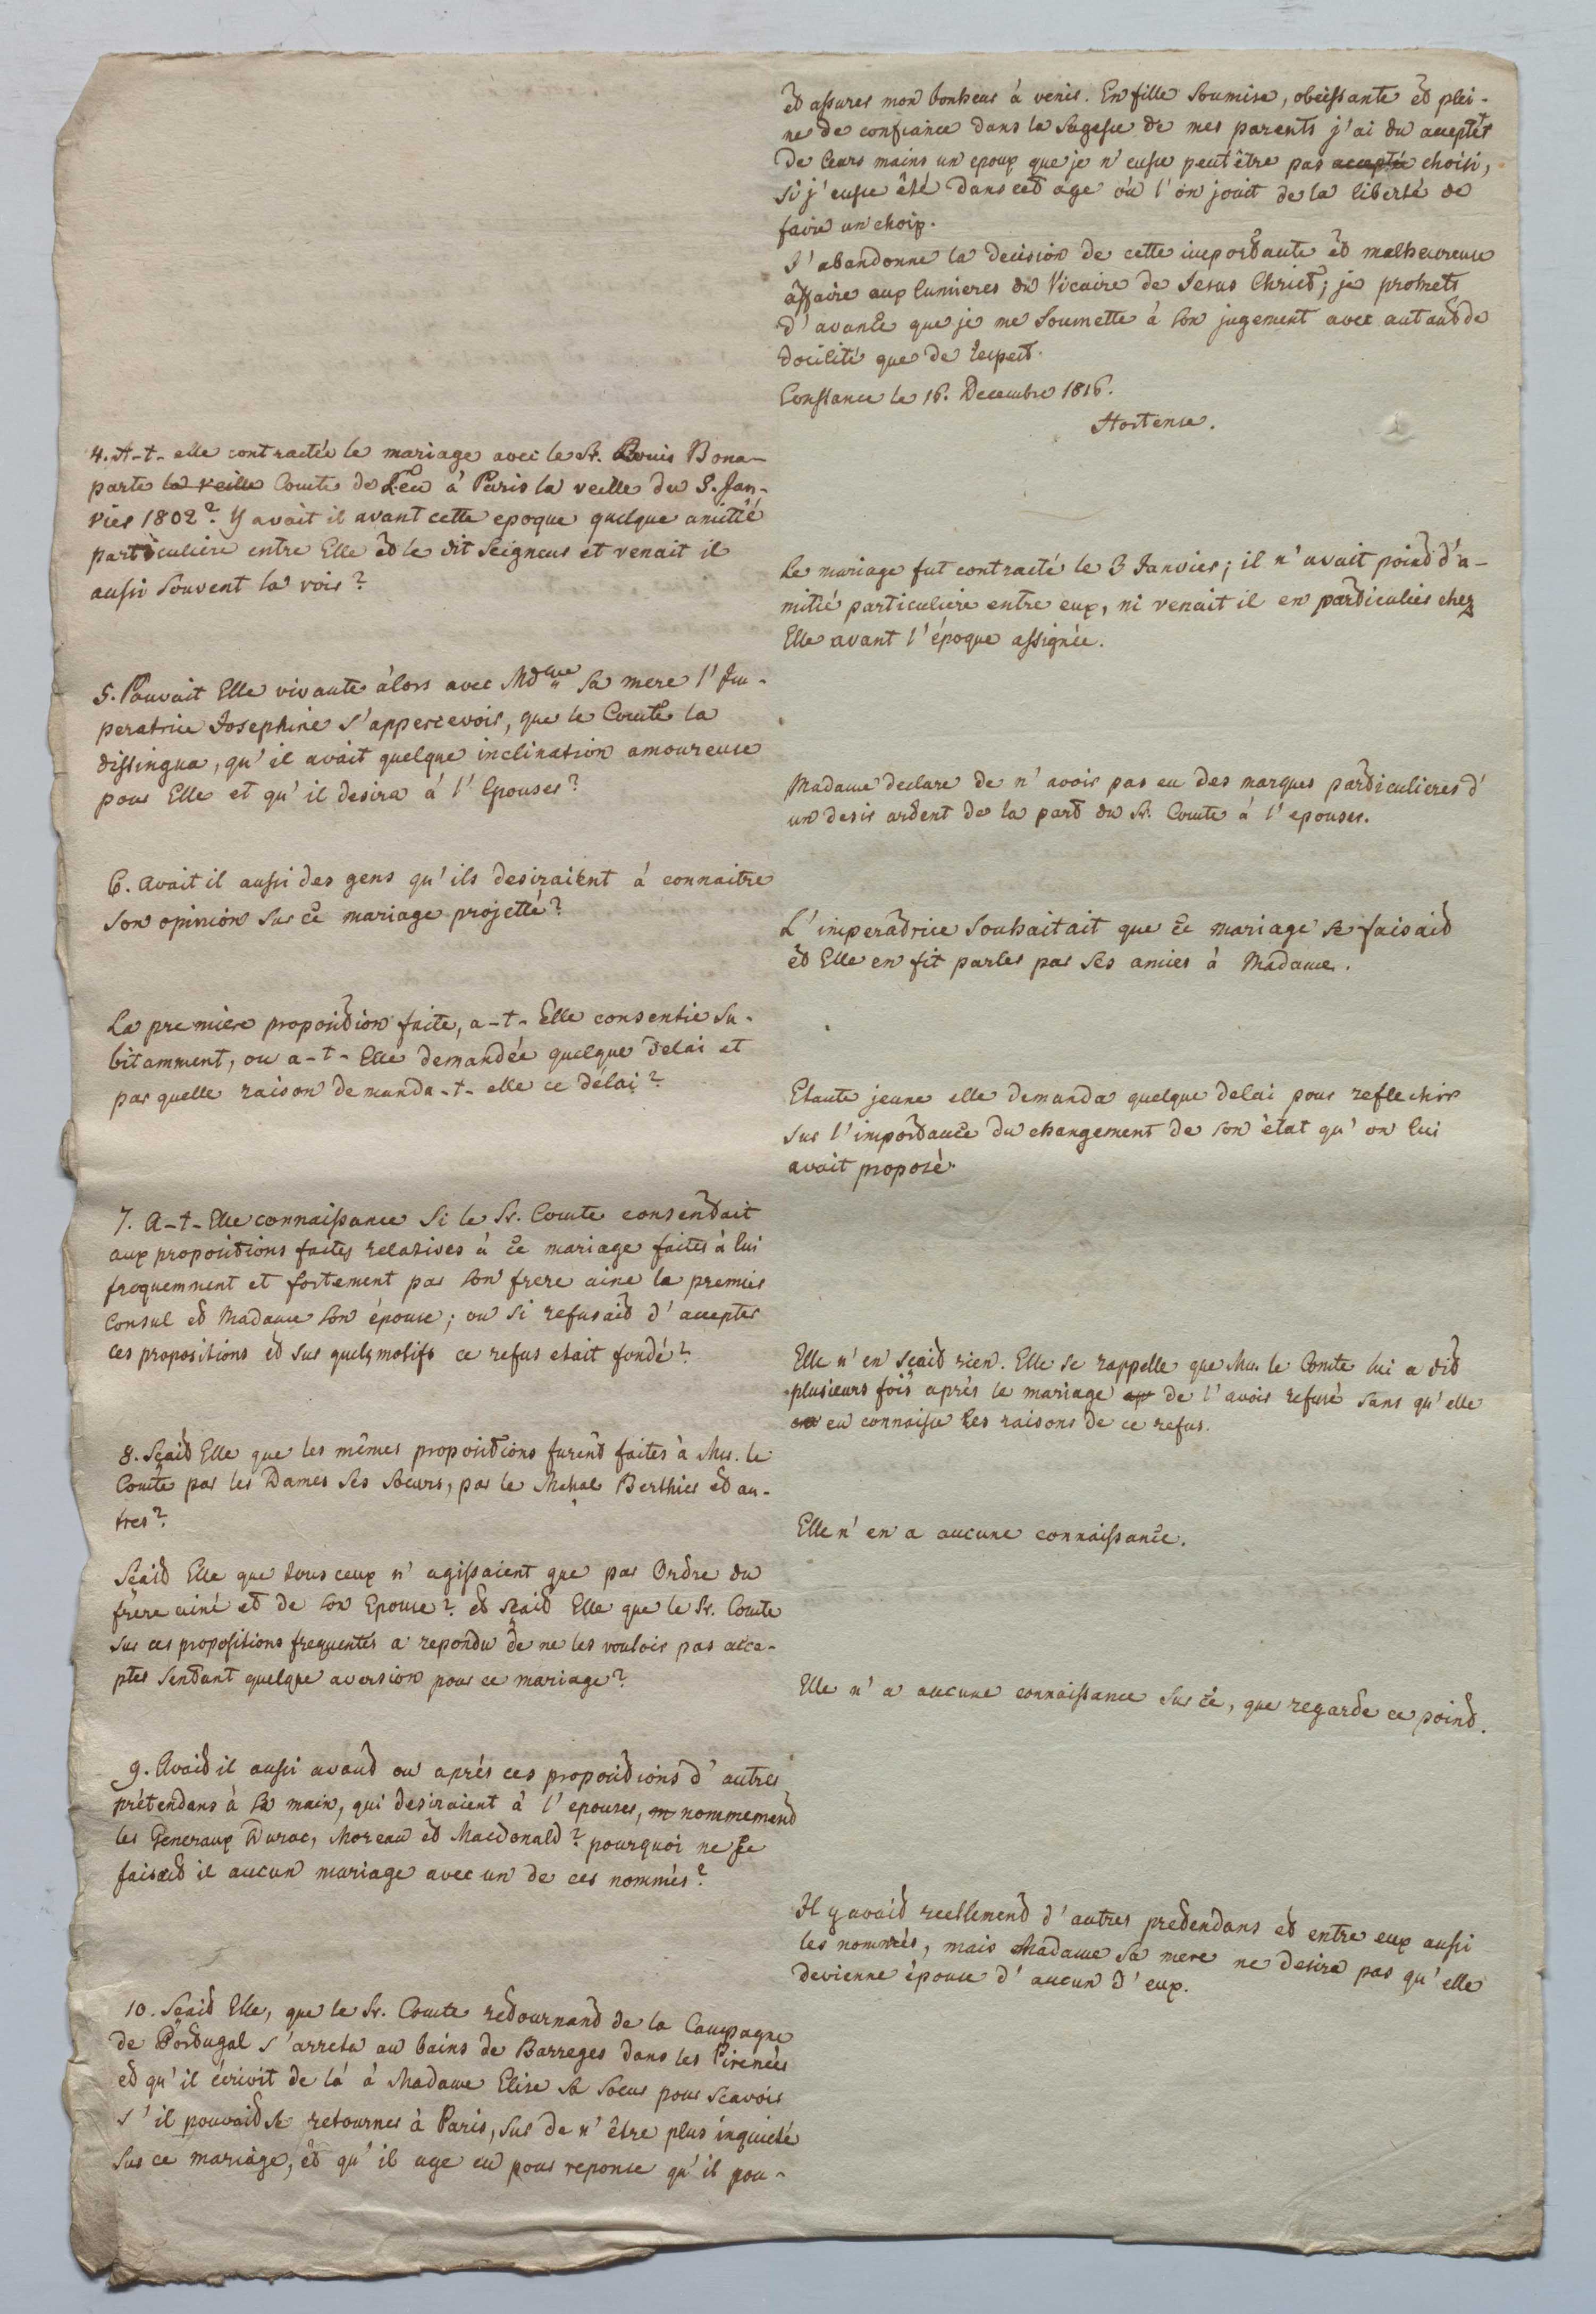 et assurer mon bonheur à venir. En fille soumise, obeissante et plei-
ne de confiance dans la sagesse de mes parents j'ai du accepter
de leurs mains un epoux que je n'eusse peut être pas accepté choisi,
si j'eusse été dans cet age où l'on jouit de la liberté de
faire un choix.
J'abandonne la decision de cette importante et malheureuse
affaire aux lumieres du Vicaire de Jesus Christ; je promets
d'avance que je me soumette à son jugement avec autant de
docilité que de respect.
Constance le 16. Decembre 1816.
Hortense.
4. A-t-elle contractée le mariage avec le Sr. Louis Bona-
parte la veille Comte de Leu à Paris la veille du 3. Jan-
vier 1802? Y avait il avant cette epoque quelque amitié
particuliere entre Elle et le dit Seigneur et venait il
aussi souvent la voir?
Le mariage fut contracté le 3 Janvier; il n'avait point d'a-
mitié particuliere entre eux, ni venait il en particulier chez
Elle avant l'époque assignée.
5. Pouvait Elle vivante alors avec Mdme sa mere l'Im-
peratrice Josephine s'appercevoir, que le Comte la
distingua, qu'il avait quelque inclination amoureuse
pour Elle et qu'il desira à l'Epouser?
Madame declare de n'avoir pas eu des marques particulieres d'
un desir ardent de la part du Sr. Comte à l'epouser.
6. Avait il aussi des gens qu'ils desiraient à connaitre
son opinion sur ce mariage projetté?
L'imperatrice souhaitait que ce mariage se faisait
et Elle en fit parler par ses amies à Madame.
La premiere proposition faite, a-t-Elle consentie su-
bitamment, ou a-t-Elle demandée quelque delai et
par quelle raison demanda-t-elle ce délai?
Etante jeune elle demanda quelque delai pour reflechir
sur l'importance du changement de son état qu'on lui
avait proposé.
7. A-t-Elle connaissance si le Sr. Comte consentait
aux propositions faites relatives à ce mariage faites à lui
frequemment et fortement par son frere ainé le premier
Consul et Madame son épouse; ou si refusait d'accepter
ces propositions et sur quels motifs ce refus etait fondé?
Elle n'en sçait rien. Elle se rappelle que Mr. le Comte lui a dit
plusieurs fois après le mariage ap de l'avoir refusé sans qu'elle
en connaisse les raisons de ce refus.
8. Sçait Elle que les mêmes propositions furent faites à Mr. le
Comte par les Dames ses soeurs, par le Mchal Berthier et au-
tres?
Elle n'en a aucune connaissance.
Sçait Elle que tous ceux n'agissaient que par Ordre du
frere ainé et de son Epouse? et sçait Elle que le Sr. Comte
sur ces propositions frequentes a repondu de ne les vouloir pas acce-
pter sentant quelque aversion pour ce mariage?
Elle n'a aucune connaissance sur ce, que regarde ce point.
9. Avait il aussi avant ou après ces propositions d'autres
prétendans à sa main, qui desiraient à l'epouser, nommement
les Generaux Duroc, Moreau et Macdonald? pourquoi ne se
faisait il aucun mariage avec un de ces nommés?
Il y avait reellement d'autres pretendans et entre eux aussi
les nommés, mais Madame sa mere ne desira pas qu'elle
devienne épouse d'aucun d'eux.
10. Sçait Elle, que le Sr. Comte retournant de la Campagne
de Portugal s'arreta au bains de Barreges dans les Pirenées
et qu'il écrivit de là à Madame Elise sa soeur pour scavoir
s'il pouvait se retourner à Paris, sur de n'être plus inquieté
sur ce mariage, et qu'il aye eu pour reponse qu'il pou-